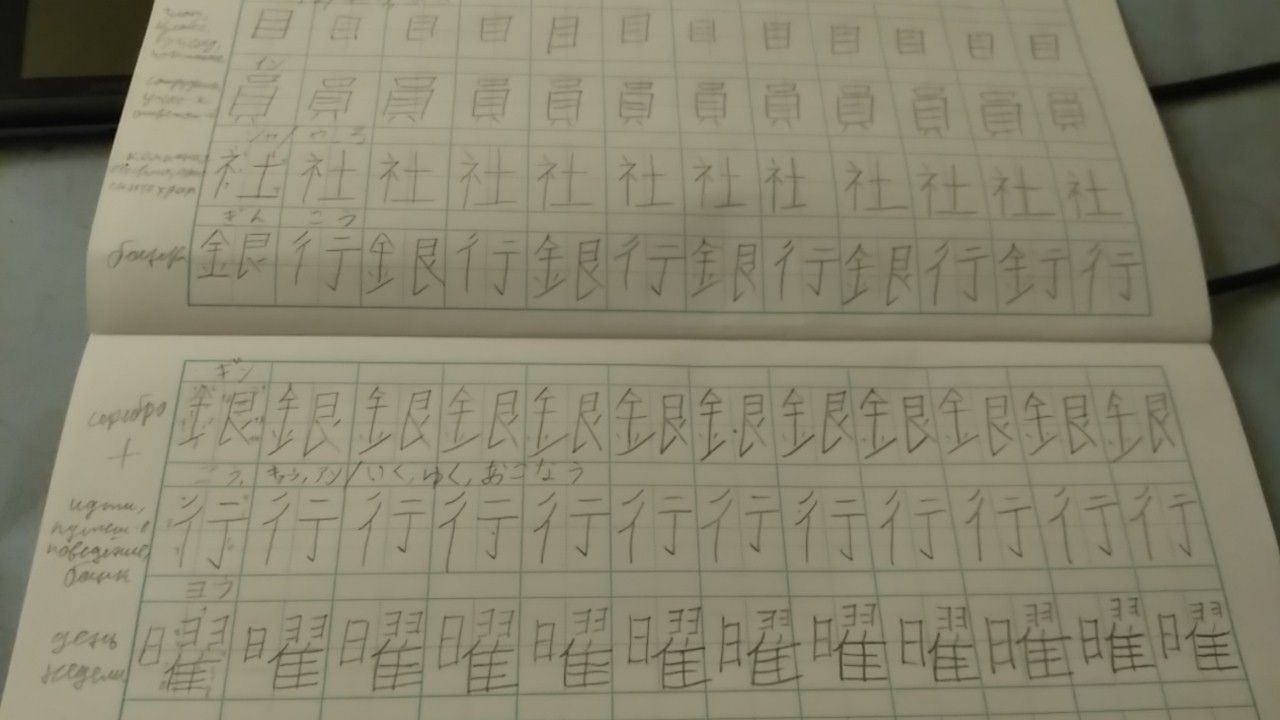 目 目 目 目 目 目 目 目 目 目 目 目
イン
員 員 員 員 員 員 員 員 員 員 員 員
シャ/やしろ
社 社 社 社 社 社 社 社 社 社 社 社
ぎん こう
банк 銀 行 銀 行 銀 行 銀 行 銀 行 金亍 行
ギン
серебро 銀 銀 銀 銀 銀 銀 銀 銀 銀 銀 銀 銀
+
こう, きょう, アン/いく, ゆく, おこなう
идти,
путеш-е 行 行 行 行 行 行 行 行 行 行 行 行
поведение,
банк
ヨウ
день 曜 曜 曜 曜 曜 曜 曜 曜 曜 曜 曜 曜
недели